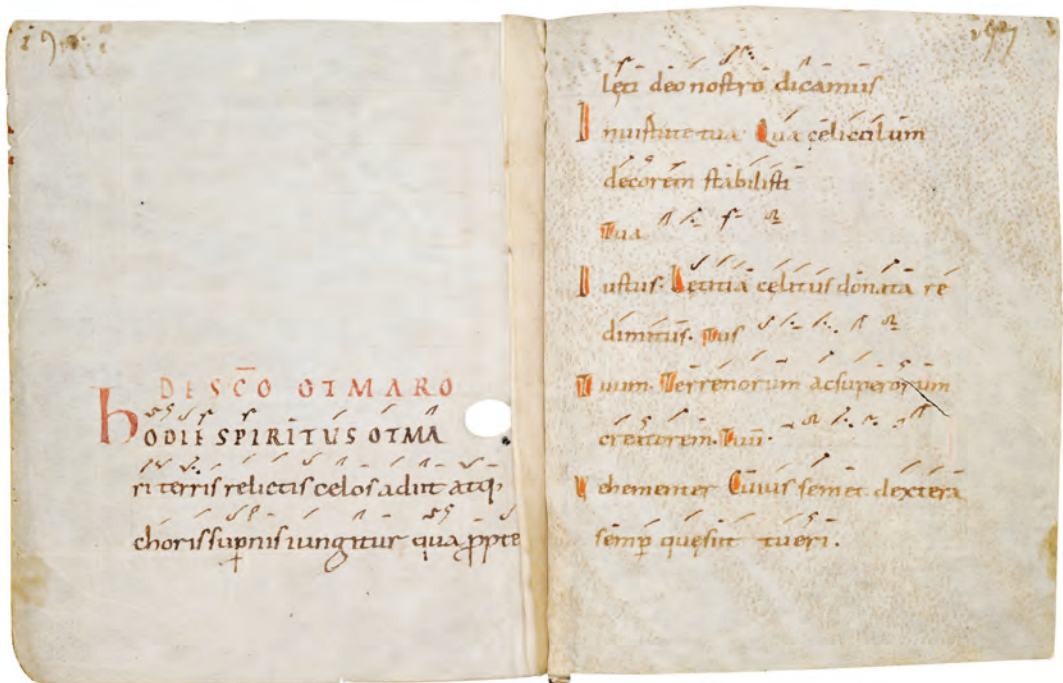 DE SC̄O OTMARO
hODIE SPIRITUS OTMA
ri terris relictis celos adiit atq;
choris supnis iungitur qua ppte
lęti deo nostro dicamus
In uirtute tua Qua celi
decorem stabilisti
Tua
Iustus. Lętitia cęlitus donata re
dimitus. tus
Tuum. Terrenorum ac superorum
creatorem. Tuū.
Vehementer Cuius semet dextera
semp quęsiit tueri.